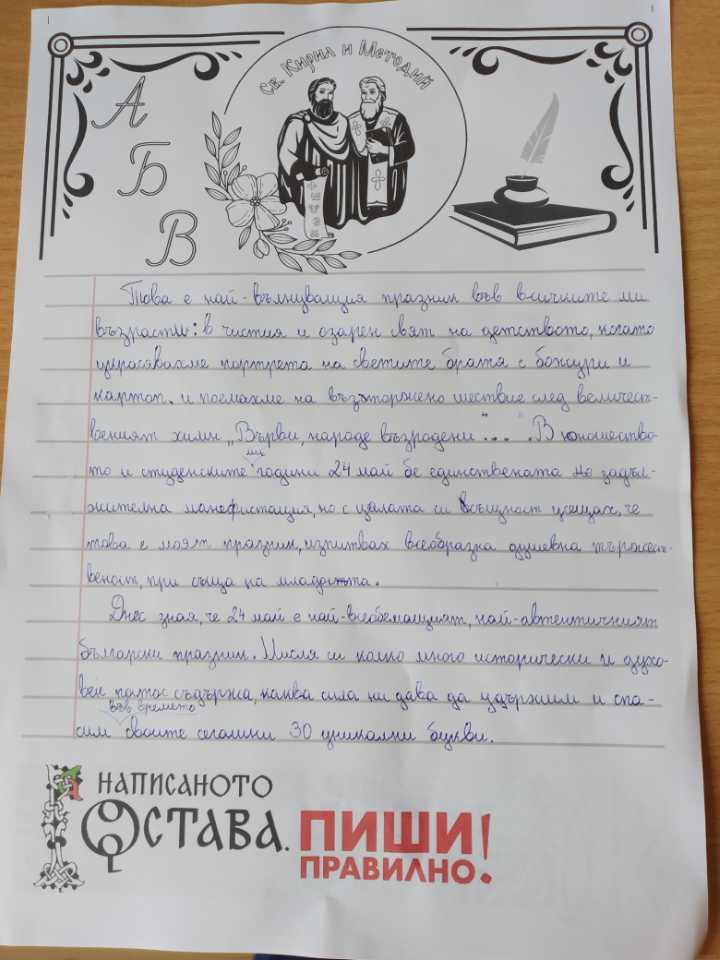 Св. Кирил и Методий
А
Б
В
Това е най-вълнуващия празник във всичките ми
възрасти: в чистия и озарен свят на детството, когато
украсявахме портрета на светите братя с божури и
картон. и поемахме на възторжено шествие след величест-
веният химн „Върви, народе възродени"... . В юношество-
то и студенските ми години 24 май бе единствената не задъл-
жителна манифистация, но с цялата си същност усещах, че
това е моят празник, изпитвах всеобразна душевна тържест-
веност, при същa на младостта.
Днес зная, че 24 май е най-всеобемащият, най-автентичният
български празник. Мисля си колко много исторически и духо-
вен патос съдържа, каква сила ни дава да удържим и спа-
във времето
сим своите сегашни 30 уникални букви.
НАПИСАНОТО
ОСТАВА. ПИШИ
ПРАВИЛНО!